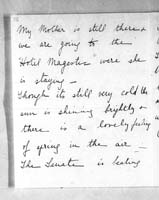 My Mother is still there &
we are going to the
"Hotel Magestic" were she
is staying —
Though its still very cold the
sun is shining brightly &
there is a lovely feeling
of spring in the air —
The Senator is